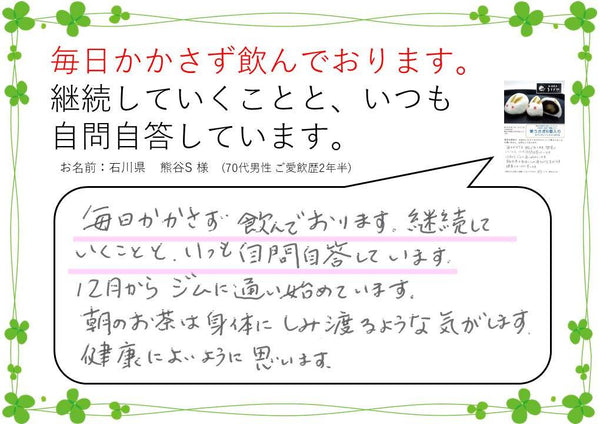 毎日かかさず飲んでおります。
継続していくことと、いつも
自問自答しています。
お名前：石川県　熊谷S 様　（70代男性 ご愛飲歴2年半）
毎日かかさず 飲んでおります。継続して
いくことと、いつも自問自答しています。
12月から ジムに通い始めています。
朝のお茶は身体に しみ渡るような気がします.
健康によいように思います.